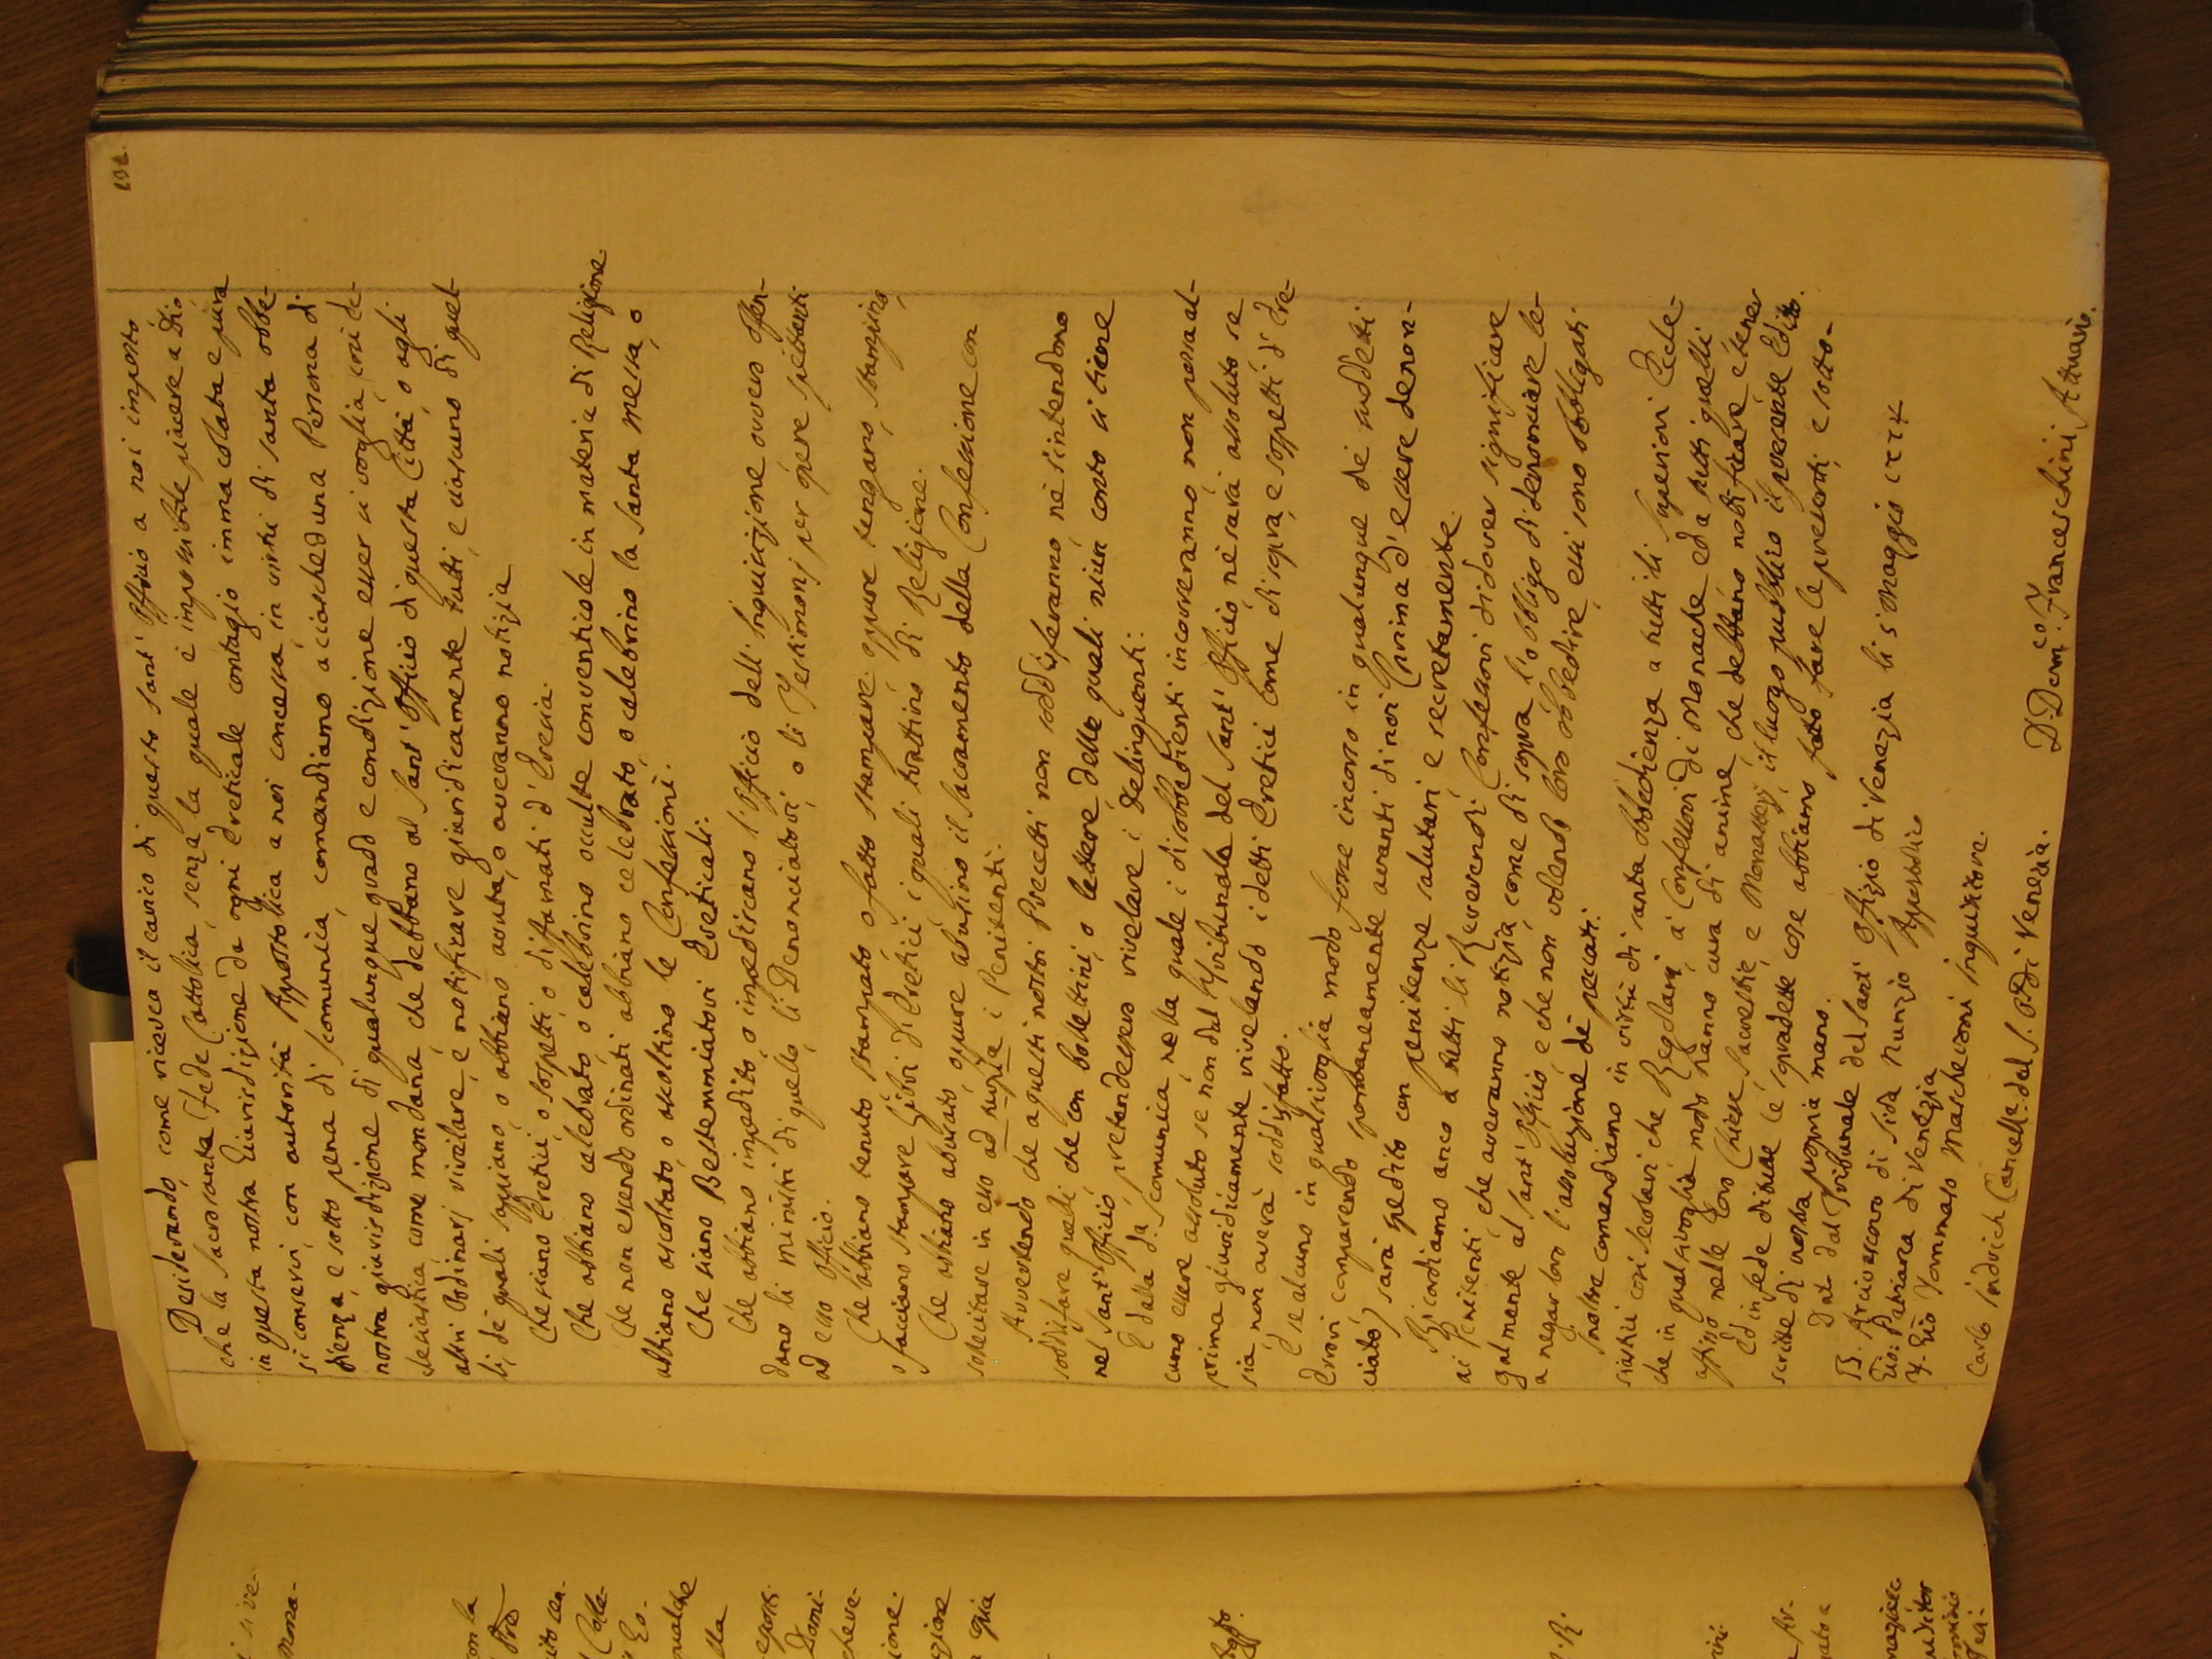 132.
Desiderando, come ricerca il carico di questo Sant' Officio a noi imposto
che la Sacrosanta Fede Cattolica, senza la quale è impossibile piacere a Dio
in questa nostra Giurisdizione da ogni Ereticale contagio immacolata e pura
si conservi, con autorità Appostolica a noi concessa, in virtù di santa obbe-
dienza, e sotto pena di scomunica, comandiamo a ciascheduna Persona di
nostra giurisdizione di qualunque grado e condizione esser si voglia, così Ec-
clesiastica come mondana, che debbano al Sant' Officio di questa Città, o agli
altri Ordinarj rivelare, e notificare giuridicamente tutti, e ciascuno di quel-
li, de' quali sappiano, o abbiano avuta, o averanno notizia
Che siano Eretici, o sospetti, o diffamati d' Eresia.
Che abbiano celebrato, o celebrino occulte conventicole in materia di Religione
Che non essendo ordinati abbiano celebrato, o celebrino la Santa Messa, o
abbiano ascoltato, o ascoltino le Confessioni.
Che siano Bestemmiatori Ereticali.
Che abbiano impedito, o impediscano l' Officio dell' Inquisizione ovvero offen-
dano li ministri di quello, li Denonciatori, o li Testimonj per opere spettanti
ad esso Officio.
Che abbiano tenuto, stampato, o fatto stampare, oppure tengano, stampino,
o facciano stampare Libri d' Eretici, i quali trattino di Religione.
Che abbiano abusato, oppure abusino il sacramento della Confessione con
sollecitare in esso ad turpia i Penitenti.
Avvertendo che a questi nostri Precetti non soddisferanno nè s'intendono
soddisfare quelli, che con bollettini, o lettere, delle quali niun conto si tiene
nel Sant' Officio, pretendessero rivelare i delinquenti:
E dalla da scomunica, nella quale i disobbedienti incorreranno, non possa al-
cuno essere assoluto se non dal Tribunale del Sant' Officio, nè sarà assoluto se
prima giuridicamente rivelando i detti Eretici come di sopra, e sospetti d' Ere-
sia, non averà soddisfatto.
E se alcuno in qualsivoglia modo fosse incorso in qualunque de' suddetti
Errori comparendo spontaneamente avanti di noi (prima d' essere denon-
ciato) sarà spedito con penitenze salutari, e secretamente.
Ricordiamo anco a tutti li Reverendi Confessori di dover significare
ai Penitenti, che averanno notizia, come di sopra l' obbligo di denonciare le-
galmente al Sant' Officio, e che non volendo loro obbedire, essi sono obbligati
a negar loro l' assoluzione de' peccati.
Inoltre comandiamo in virtù di santa obbedienza a tutti li Superiori Eccle-
siastici così secolari che Regolari, a' Confessori di Monache, ed a tutti quelli
che in qualsivoglia modo hanno cura di anime, che debbano notificare, e tener
affisso nelle loro Chiese, Sacrestie, e Monasterj, il luogo pubblico il presente Editto.
Ed in fede di tutte le predette cose abbiamo fatto fare le presenti, e sotto-
scritte di nostra propria mano.
Dat. dal Tribunale del Sant' Offizio di Venezia li 5 Maggio
B. Arcivescovo di Sida Nunzio Appostolico
Gio: Patriarca di Venezia
F. Gio Tommaso Mascheroni Inquisitore.
Carlo Indrich Cancell. del S. Off. di Venezia.
D. Dem.co Franceschini Attuario.
mona-
con la
ito ca-
nualche
lla
Domi-
cheve-
ione.
gato a